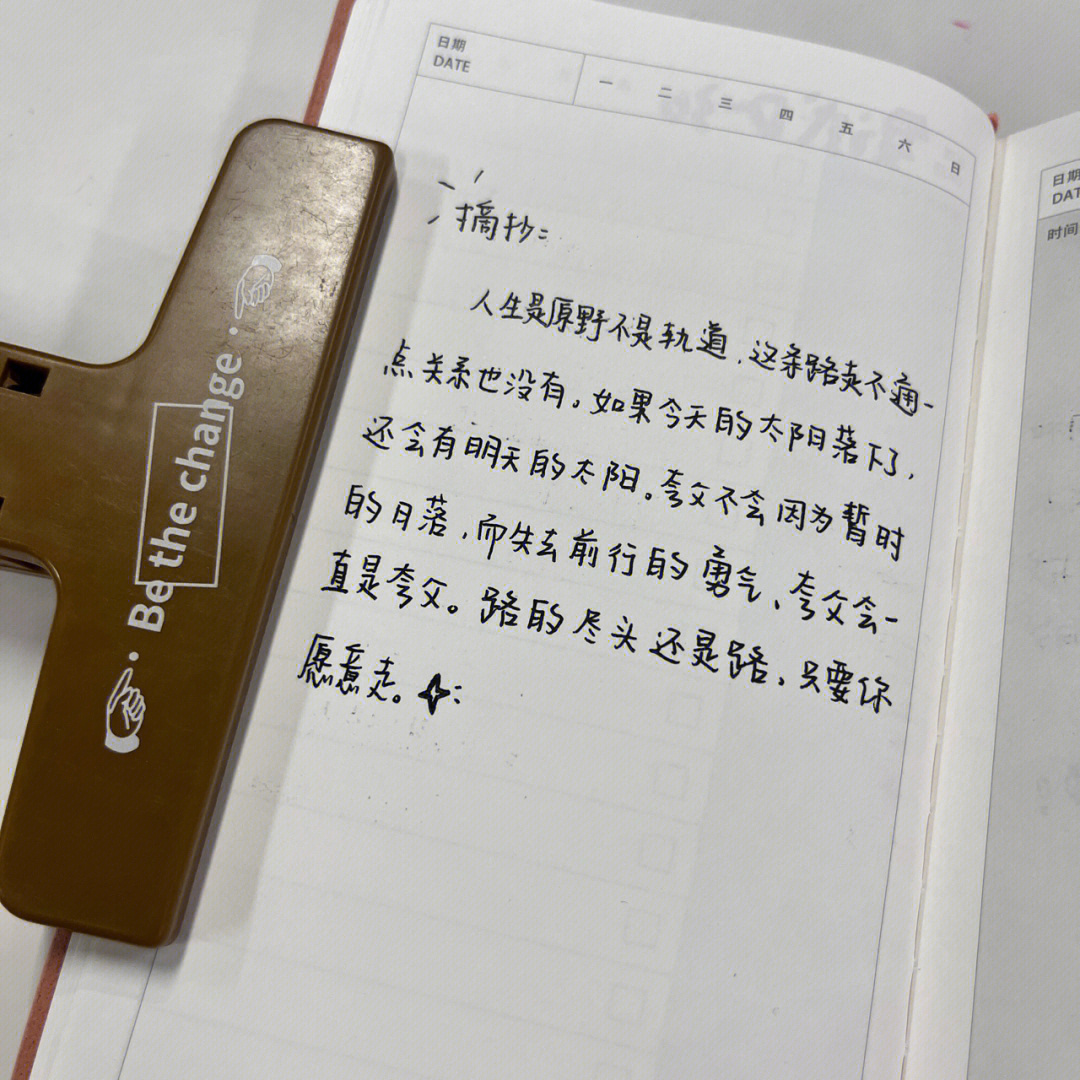 日期
DATE
一 二 三 四 五 六 日
摘抄:
人生是原野不是轨道,这条路走不通一
点关系也没有。如果今天的太阳落下了,
还会有明天的太阳。夸父不会因为暂时
的日落,而失去前行的勇气、夸父会一
直是夸父。路的尽头还是路,只要你
愿意走。
Be the change
日期
DAT
时间